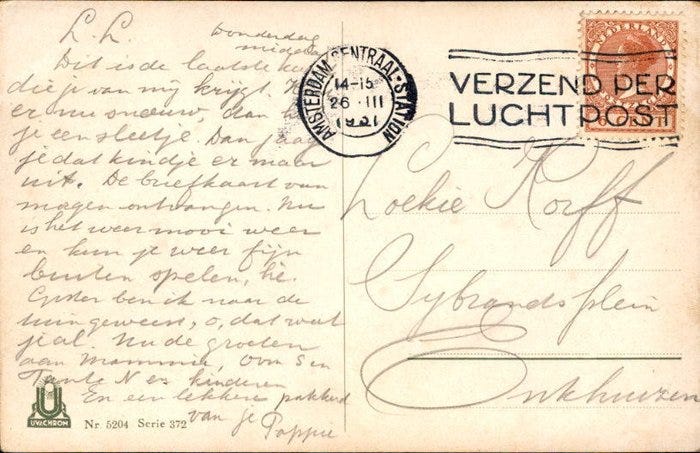 L. L.
Donderdag
middag
Dit is de laatste
die je van mij krijgt.
er nu sneeuw, dan
je een sleetje. Dan
je dat kindje er maar
uit. De briefkaart van
morgen ontvangen. Nu
is het weer mooi weer
en kun je weer fijn
buiten spelen, hè.
Gister ben ik naar de
geweest, o, dat was
Nu de groeten
aan Mammie, Oom S en
Tante N en kinderen
En een lekkere pakkerd
van je
Pappie
AMSTERDAM CENTRAAL-STATION
14-15
26 III
1931
VERZEND PER
LUCHTPOST
NEDERLAND
Loekie Korff
Sybrandsplein
Enkhuizen
U
UVACHROM
Nr. 5204 Serie 372